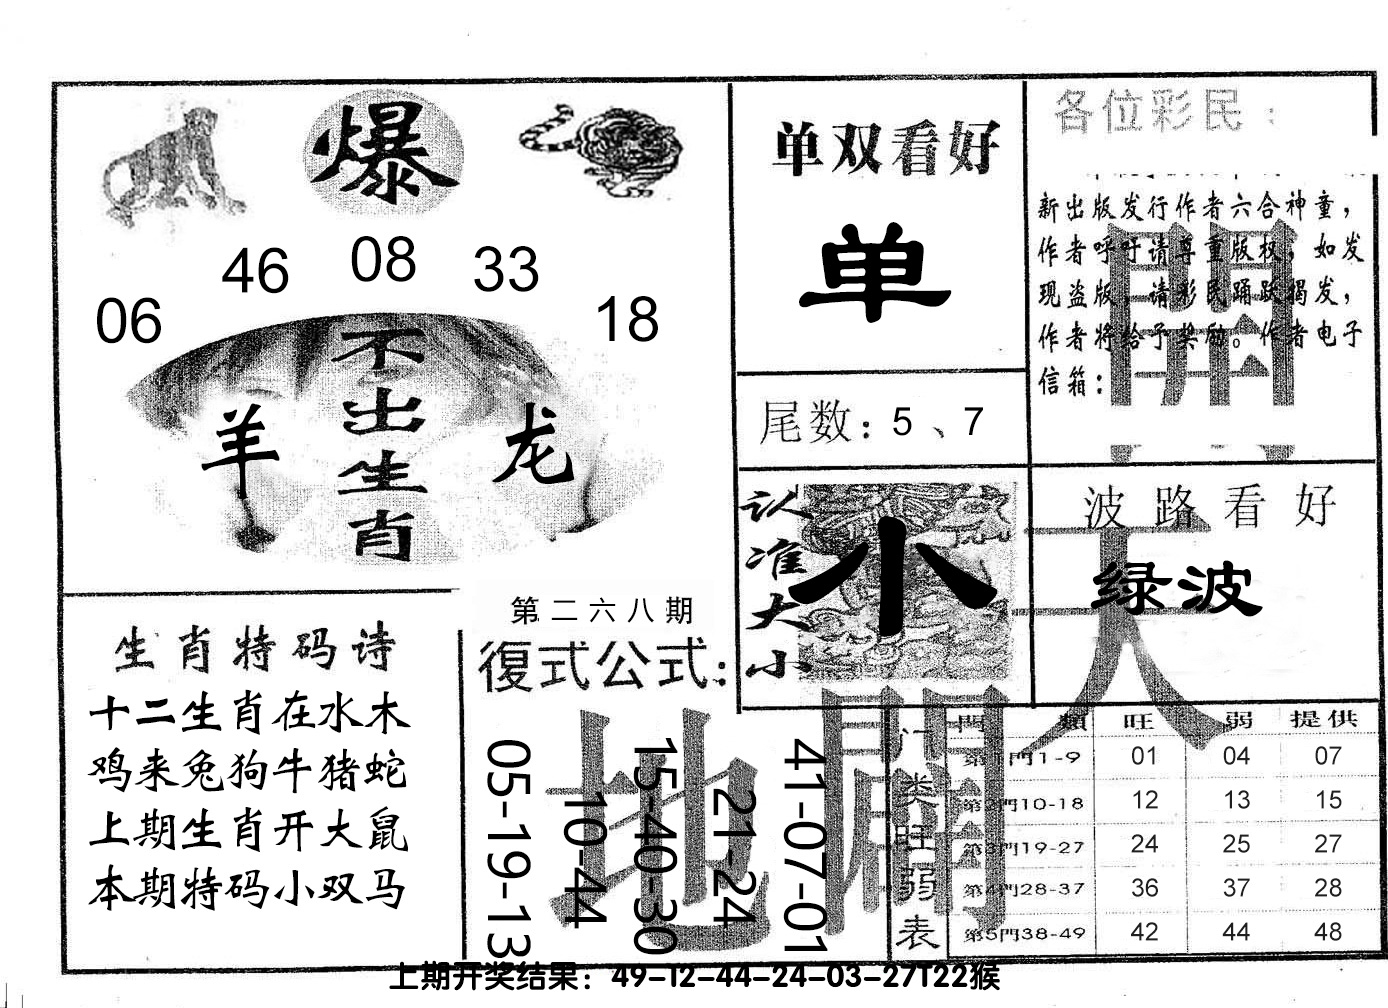 爆
46 08 33
06 18
不出生肖
羊 龙
单双看好
单
尾数：5、7
各位彩民：
新出版发行作者六合神童，
作者呼吁请尊重版权，如发
现盗版，请彩民踊跃揭发，
作者将给予奖励。作者电子
信箱：
认准大小
小
波路看好
绿波
生肖特码诗
十二生肖在水木
鸡来兔狗牛猪蛇
上期生肖开大鼠
本期特码小双马
第二六八期
復式公式：
05-19-13
10-44
15-40-30
21-24
41-07-01
天
地
開
門類 旺 弱 提供
门类旺弱表
第1門1-9 01 04 07
第2門10-18 12 13 15
第3門19-27 24 25 27
第4門28-37 36 37 28
第5門38-49 42 44 48
上期开奖结果：49-12-44-24-03-27T22猴